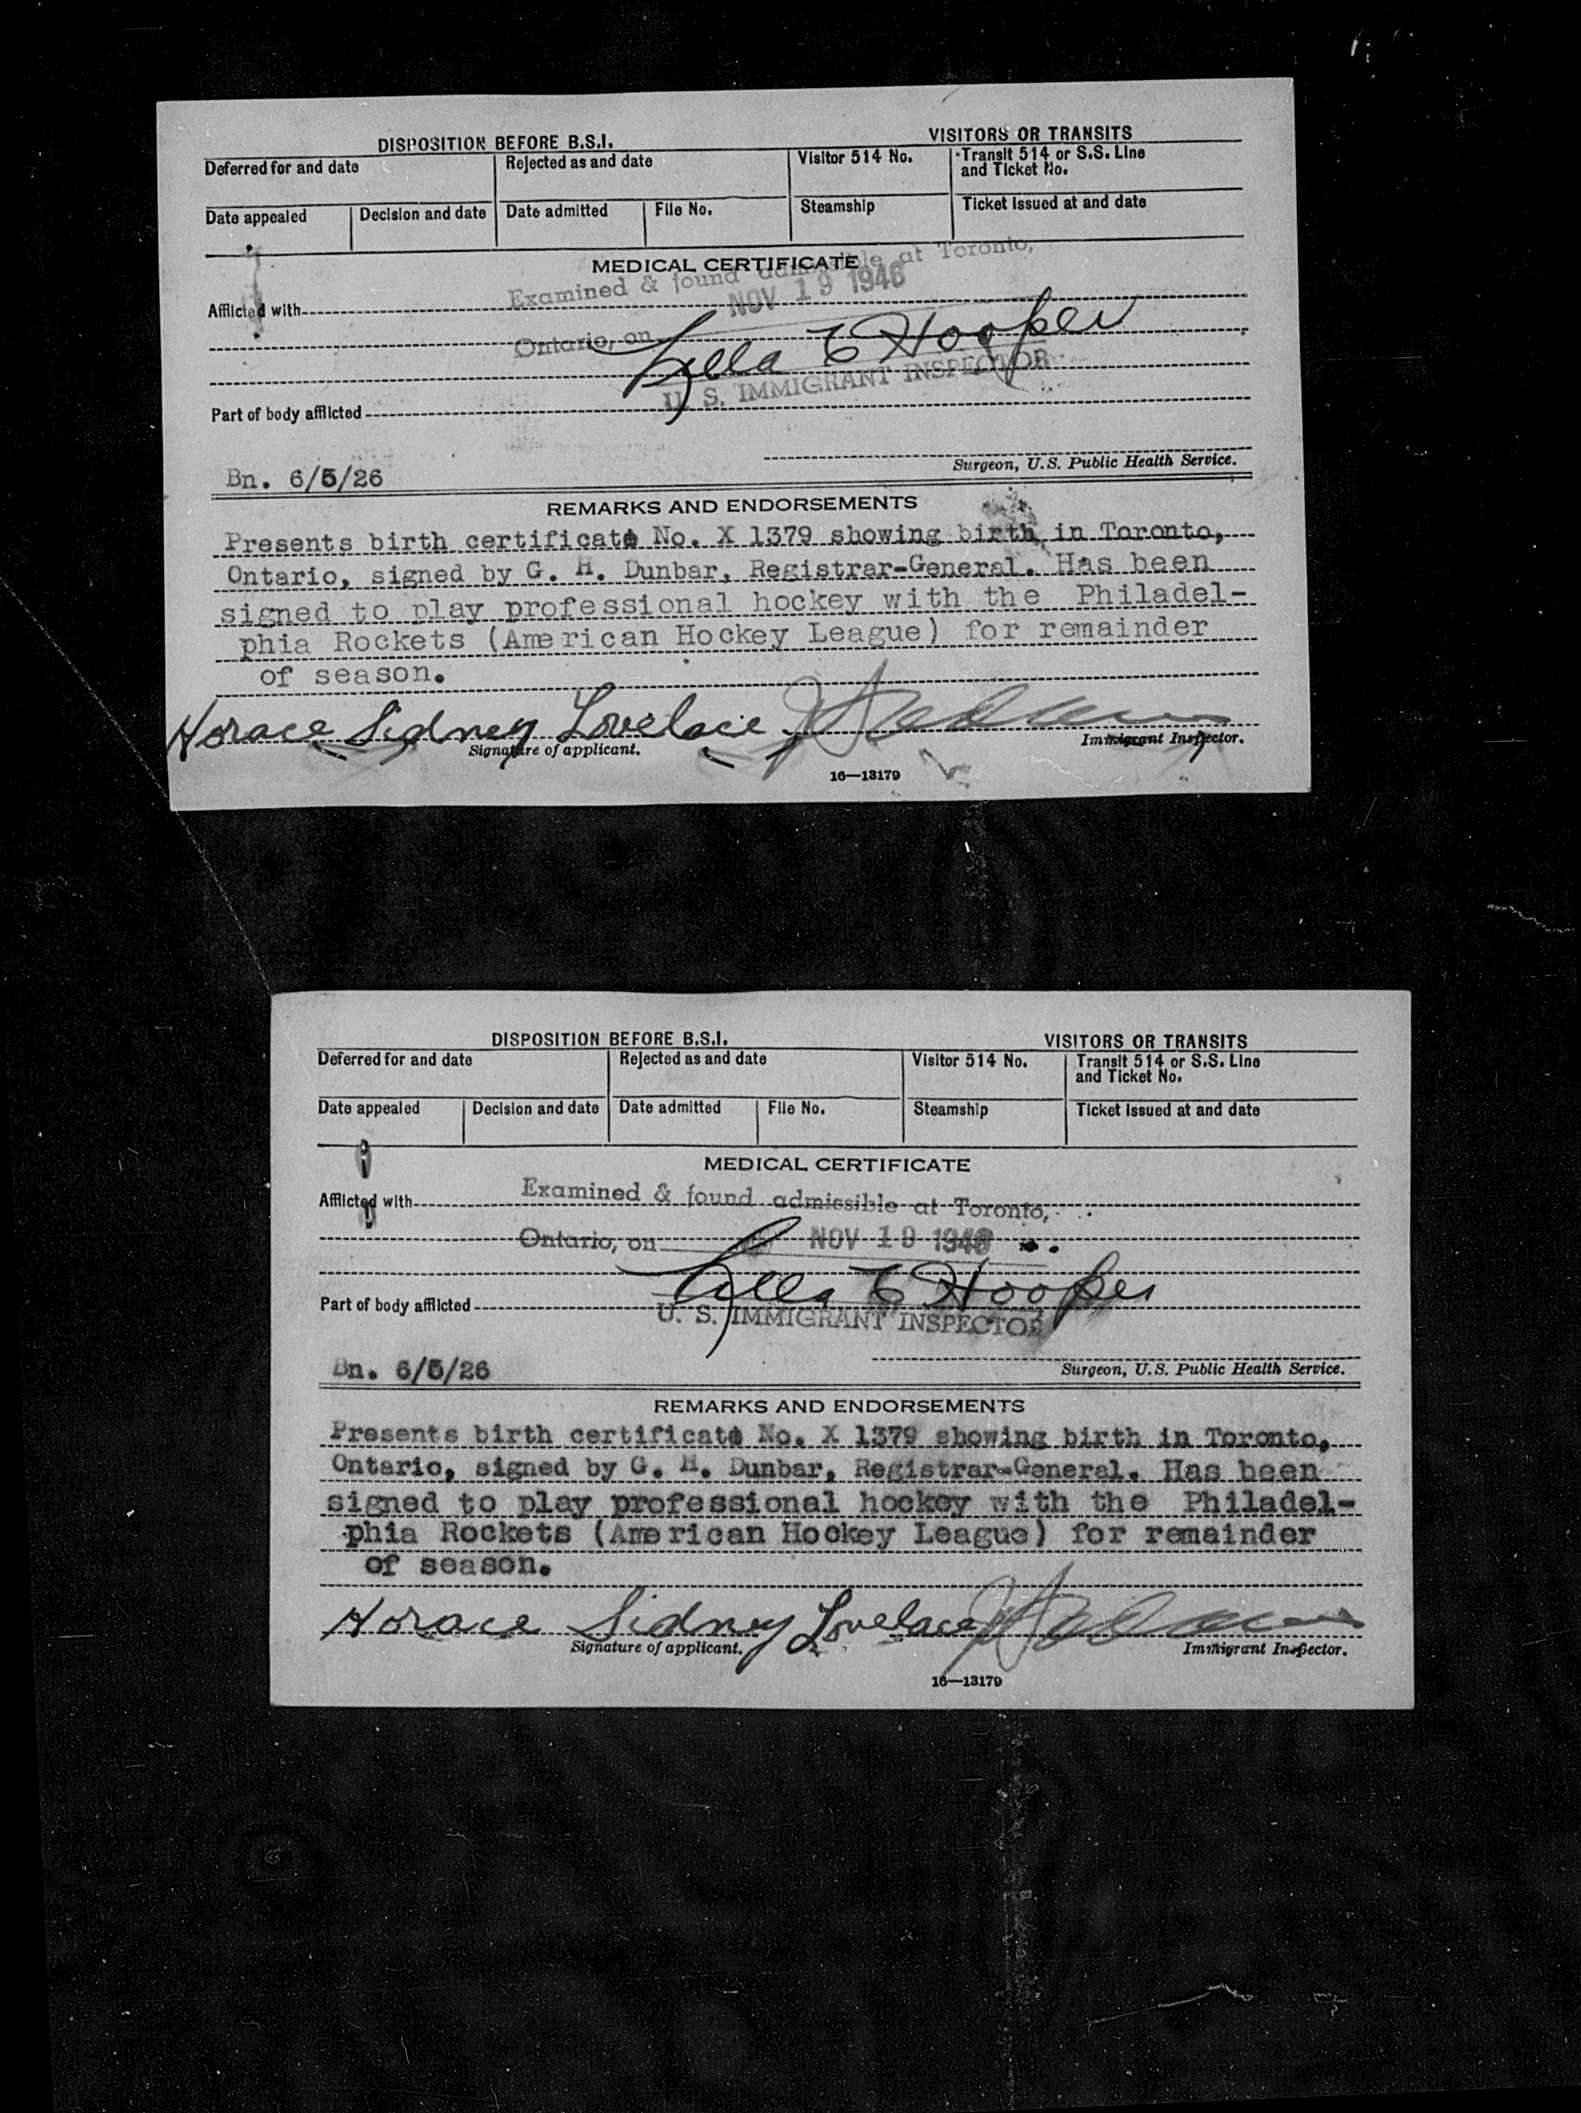 DISPOSITION BEFORE B.S.I. VISITORS OR TRANSITS
Deferred for and date Rejected as and date Visitor 514 No. Transit 514 or S.S. Line
and Ticket No.
Date appealed Decision and date Date admitted File No. Steamship Ticket issued at and date
MEDICAL CERTIFICATE
Examined & found admissible at Toronto,
NOV 19 1946
Afflicted with
Ontario, on
Lella E Hooper
U. S. IMMIGRANT INSPECTOR
Part of body afflicted
Surgeon, U.S. Public Health Service.
Bn. 6/5/26
REMARKS AND ENDORSEMENTS
Presents birth certificate No. X 1379 showing birth in Toronto,
Ontario, signed by G. H. Dunbar, Registrar-General. Has been
signed to play professional hockey with the Philadel-
phia Rockets (American Hockey League) for remainder
of season.
Horace Sidney Lovelace
Signature of applicant. Immigrant Inspector.
16—13179
DISPOSITION BEFORE B.S.I. VISITORS OR TRANSITS
Deferred for and date Rejected as and date Visitor 514 No. Transit 514 or S.S. Line
and Ticket No.
Date appealed Decision and date Date admitted File No. Steamship Ticket issued at and date
MEDICAL CERTIFICATE
Afflicted with Examined & found admissible at Toronto,
Ontario, on NOV 19 1946
Lella E Hooper
Part of body afflicted
U. S. IMMIGRANT INSPECTOR
Bn. 6/5/26 Surgeon, U.S. Public Health Service.
REMARKS AND ENDORSEMENTS
Presents birth certificate No. X 1379 showing birth in Toronto,
Ontario, signed by G. H. Dunbar, Registrar-General. Has been
signed to play professional hockey with the Philadel-
phia Rockets (American Hockey League) for remainder
of season.
Horace Sidney Lovelace
Signature of applicant. Immigrant Inspector.
16—13179